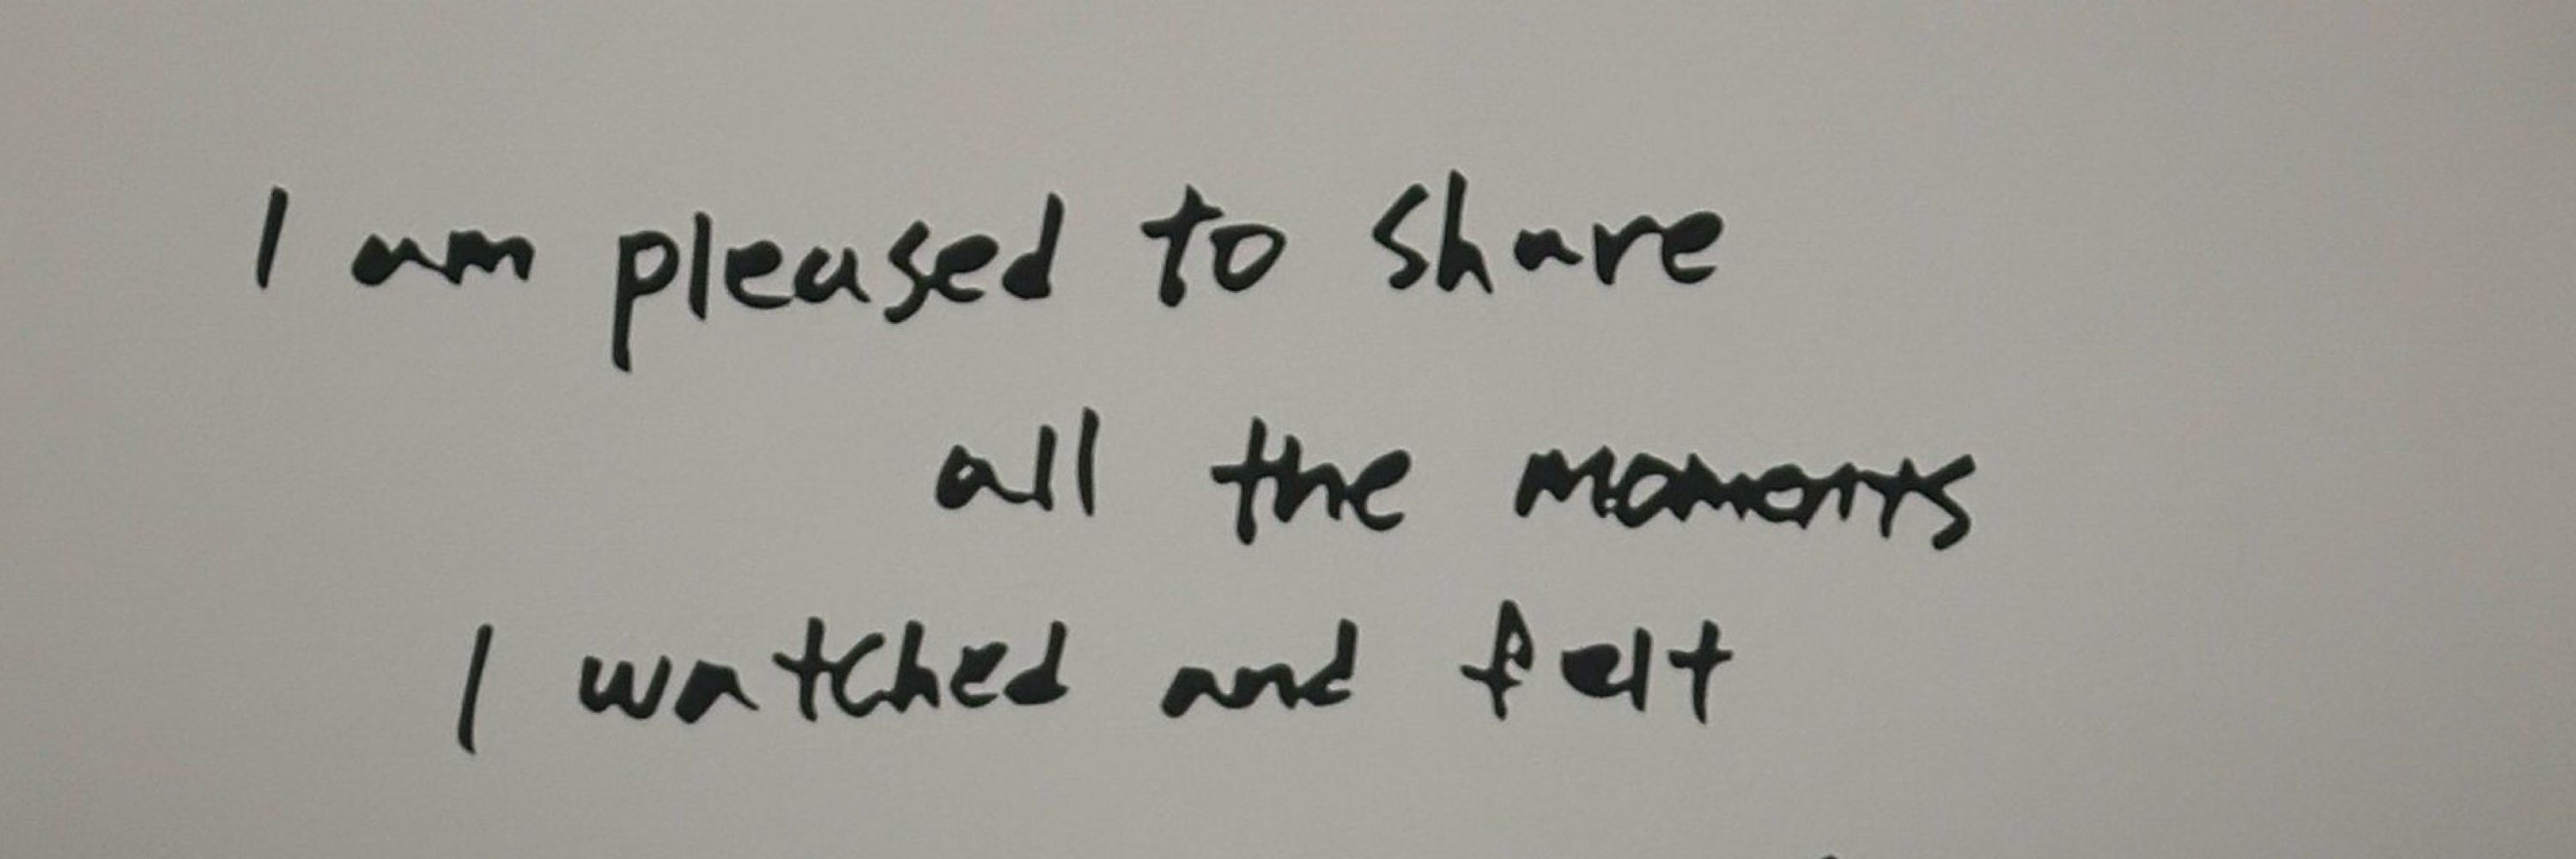 I am pleased to share
all the moments
I watched and felt